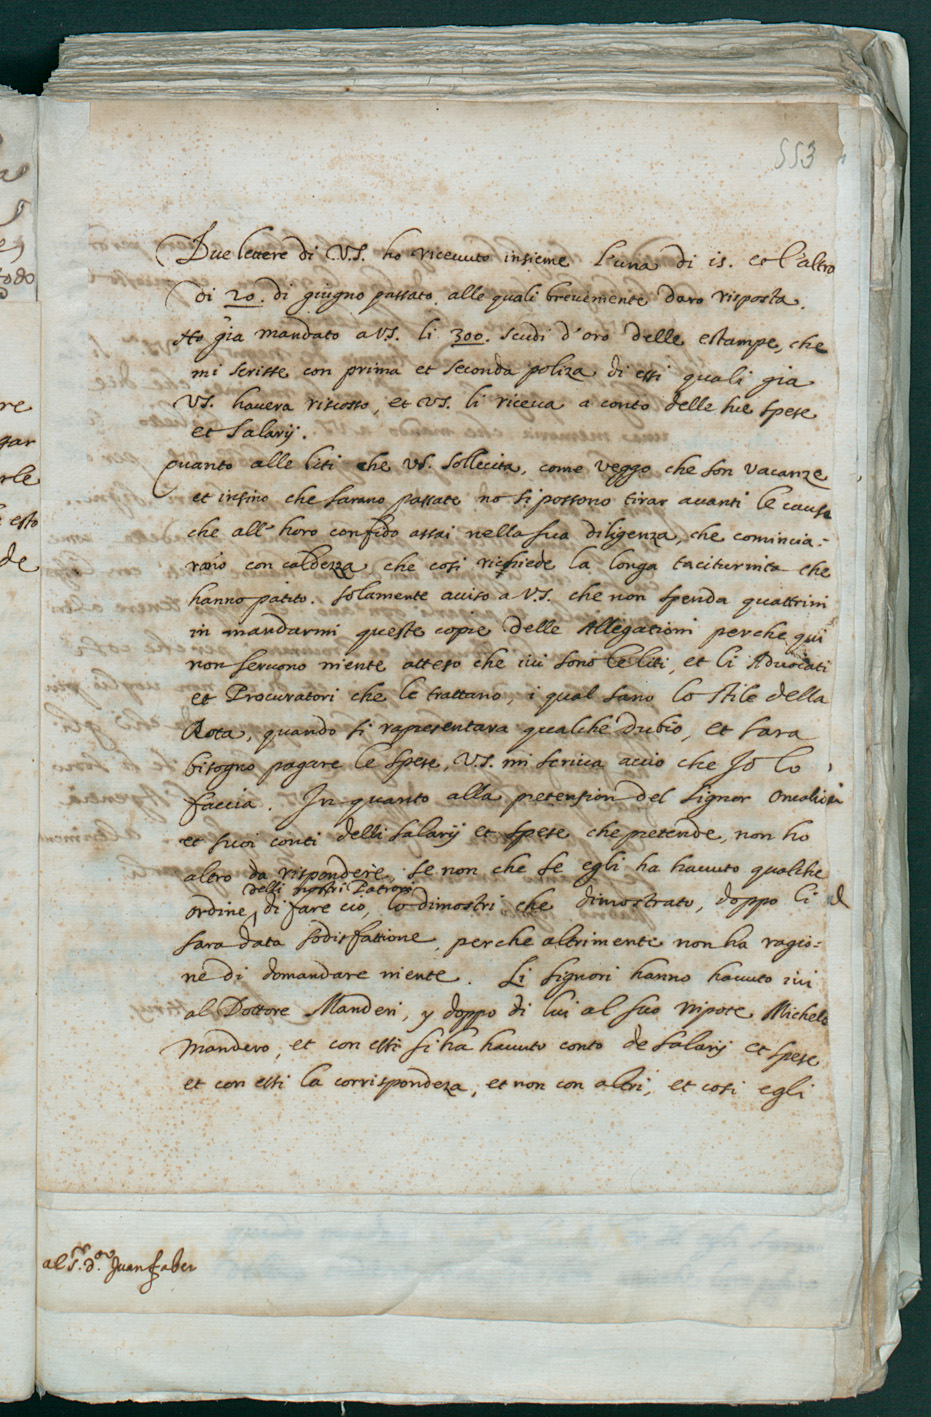 553
Due lettere di V.S. ho ricevuto insieme l'una di is. et l'altro
di 20. di giugno passato, alle quali brevemente daro risposta.
Ho gia mandato a VS. li 300. scudi d'oro delle estampe, che
mi scrisse con prima et seconda poliza di essi quali gia
VS. havera riscosso, et VS. li riceva a conto delle sue spese
et salarij.
quanto alle liti che VS. sollecita, come veggo che son vacanze
et insino che sarano passate no si possono tirar avanti le cause
che all'hora confido assai nella sua diligenza, che comincia:
rano con caldezza, che cosi richiede la longa taciturnita che
hanno patito. solamente aviso a V.S. che non spenda quattrini
in mandarmi queste copie delle Allegationi perche qui
non servono niente atteso che ivi sono le liti, et li Advocati
et Procuratori che le trattano, i qual sano lo stile della
Rota, quando si rapresentara qualche dubio, et sara
bisogno pagare le spese, V.S. mi scriva acio che Jo lo
faccia. In quanto alla pretension del signor
et suoi conti delli salarij et spese che pretende, non ho
altro da rispondere, se non che se egli ha havuto qualche
delli nostri Patroni
ordine, di fare cio, lo dimostri che dimostrato, doppo li
sara data sodisfattione, perche altrimente non ha ragio:
ne di domandare niente. Li signori hanno havuto ivi
al Dottore Manderi, y doppo di lui al suo nipote Michele
Mandero, et con essi si ha havuto conto de salarij et spese
et con essi la corrispondeza, et non con altri, et cosi egli
al S.r d.or Juan faber
re
gar
rle
esto
de